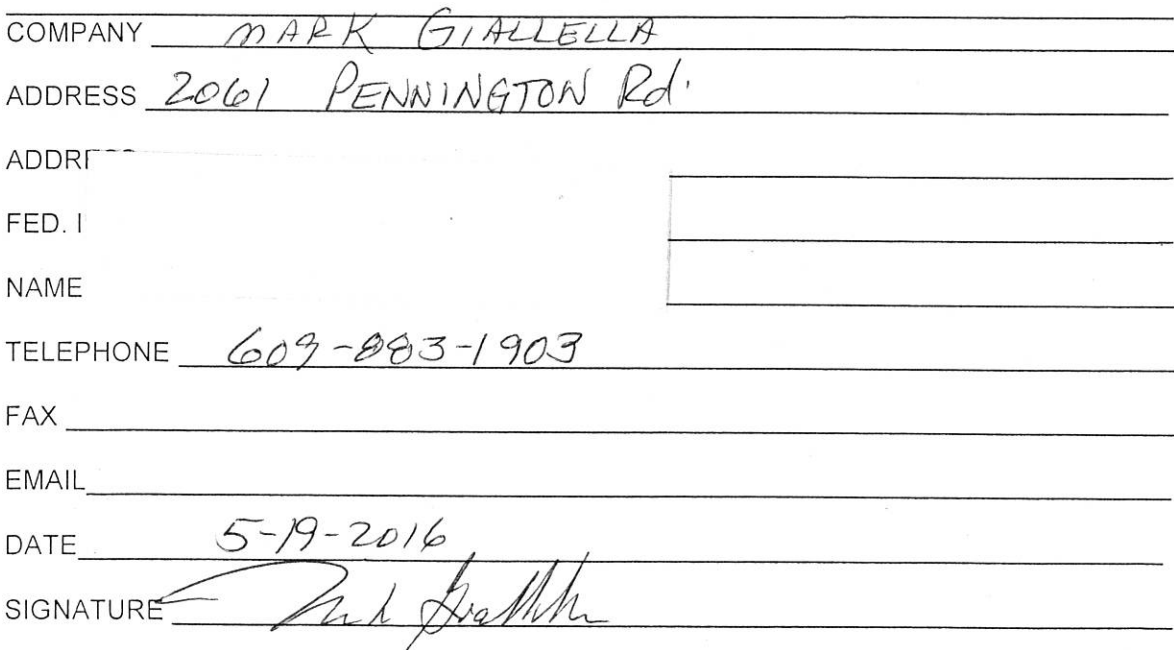 COMPANY MARK GIALLELLA
ADDRESS 2061 PENNINGTON Rd.
ADDR
FED. I
NAME
TELEPHONE 609-883-1903
FAX
EMAIL
DATE 5-19-2016
SIGNATURE